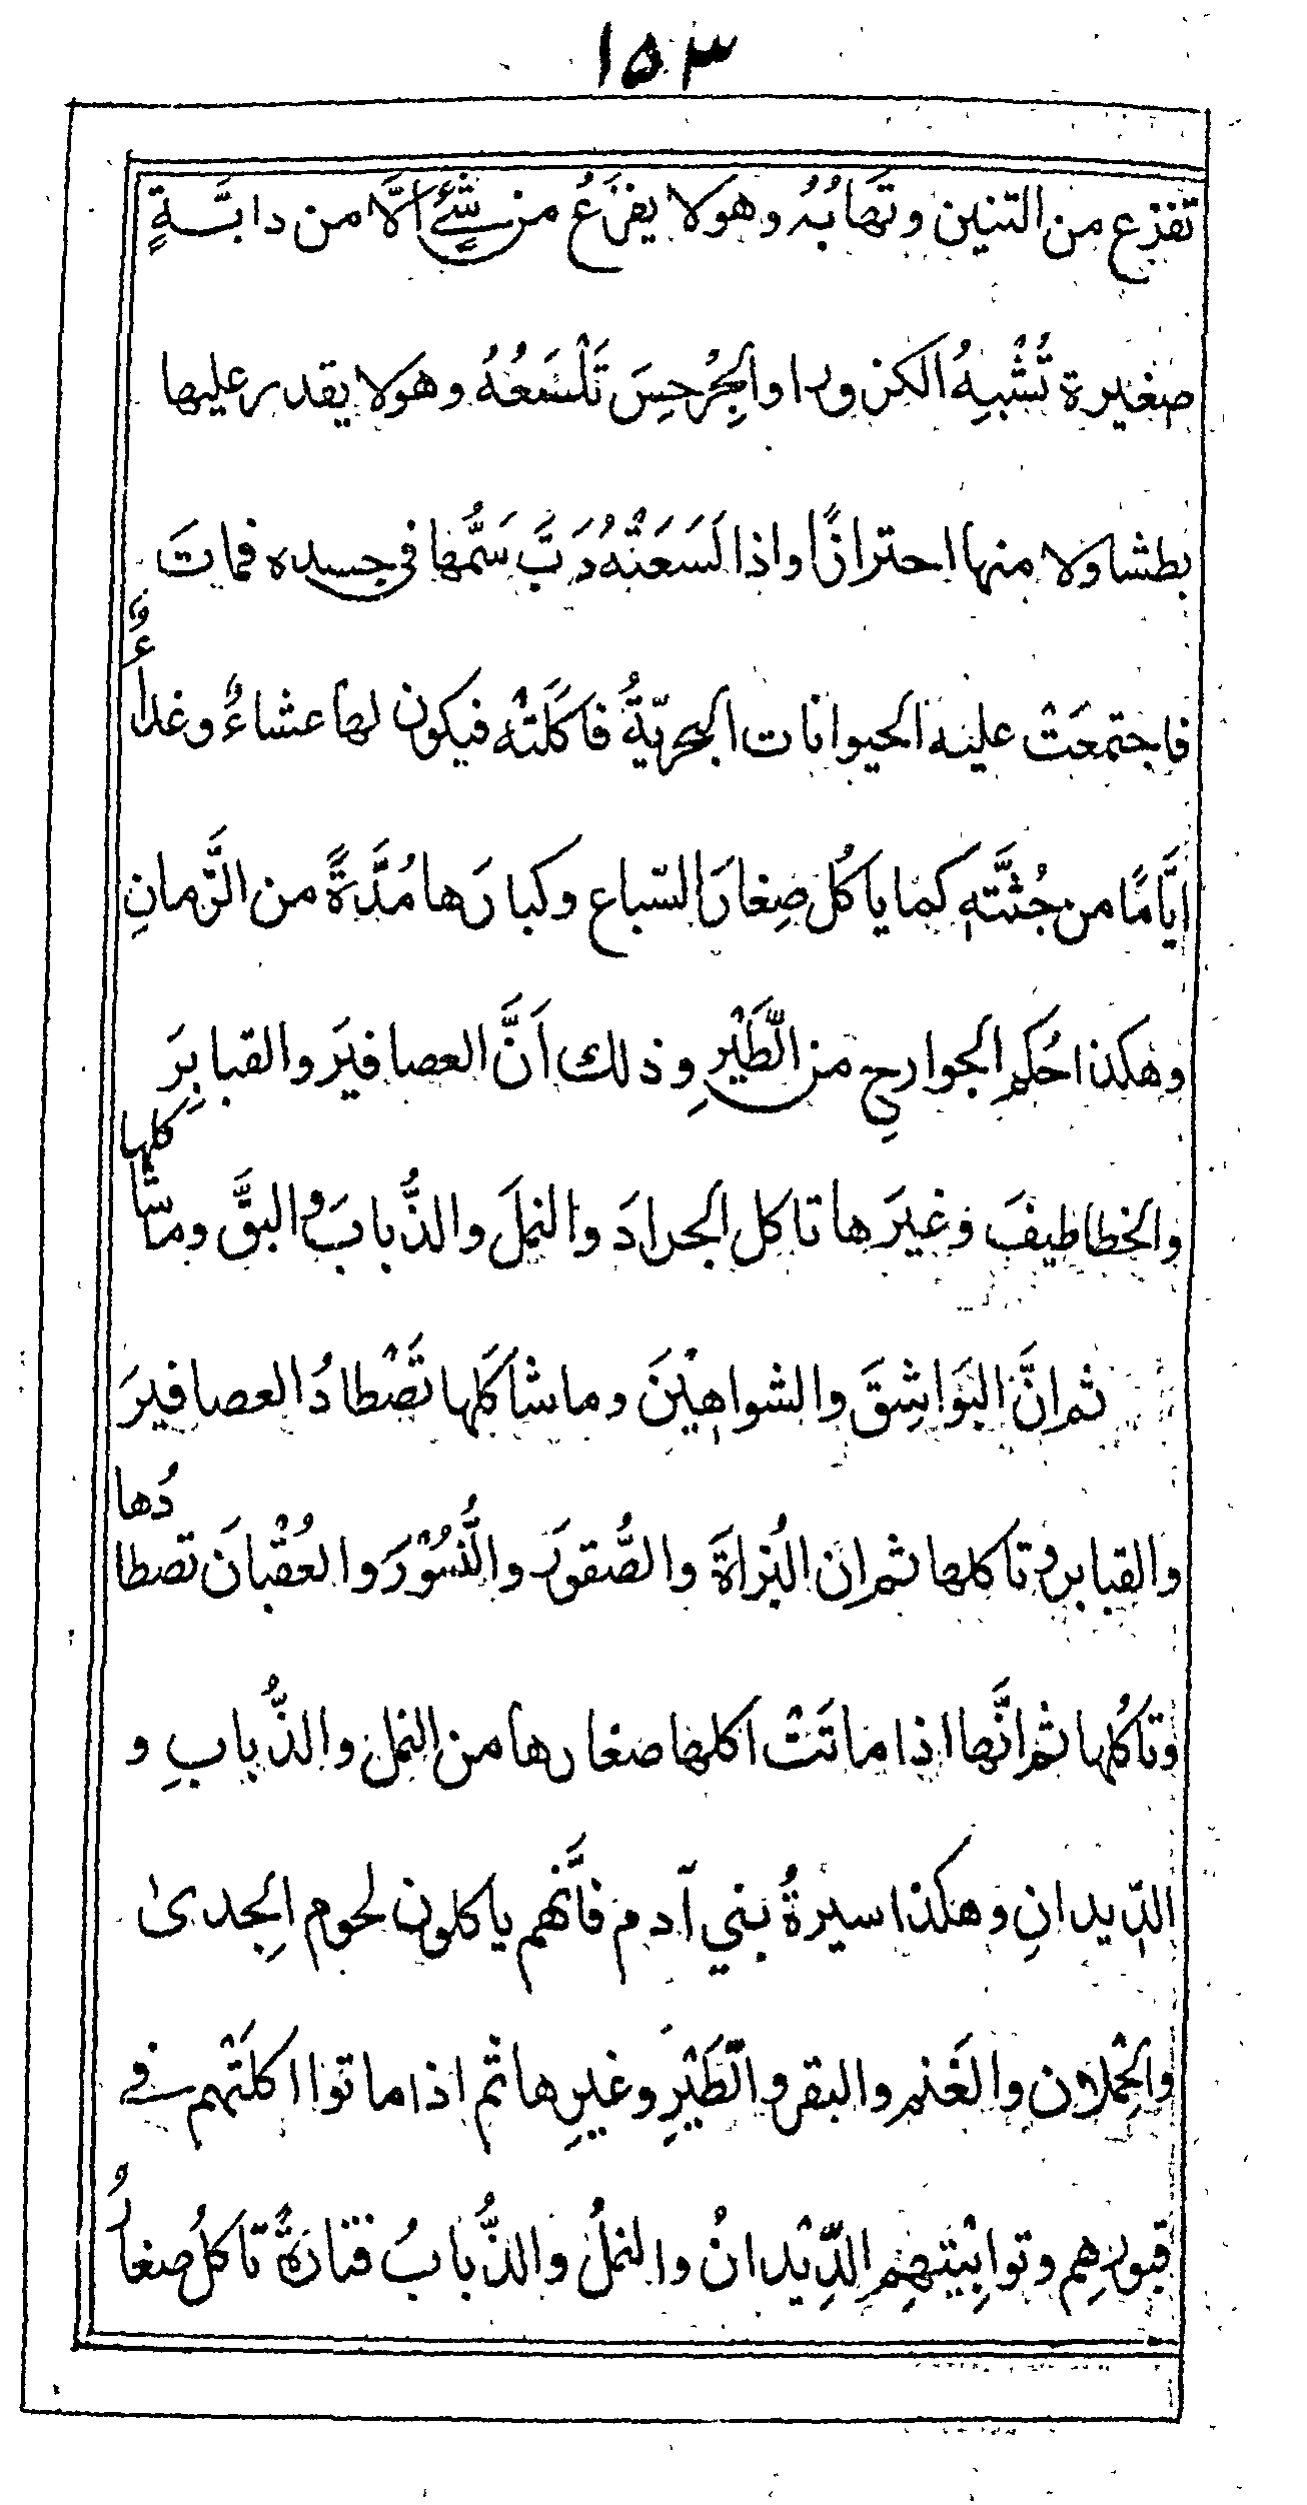 ١٥٣
تفزع من التنين وتَهابُهُ وهولا يفزَعُ من شَئٍ الَّا من دابَّةٍ
صغيرة تُشْبِهُ الكزورا والجِرْجِسَ تَلْسَعُهُ وهَولا يقدر عليها
بطشا ولا منها احترازًا واذا لَسَعَتْهُ دَبَّ سَمُّها في جسده فماتَ
فاجتمعَتْ عليه الحيوانات البحريّةُ فاكَلَتْه فيكون لها عشاءٌ وغداءٌ
ايَّامًا من جُثَّتِه كما ياكُل صِغارَ السباع وكبارَها مُدَّةً من الزَّمانِ
وهكذا حُكم الجوارحِ من الطَّيْرِ وذلك اَنَّ العصافيَر والقبابِرَ
والخطاطيفَ وغيَرها تاكل الجرادَ والنملَ والذُّبابَ والبقَّ وماشاكلها
ثم انَّ البَوَاشِقَ والشواهِيْنَ وما شاكَلها تَصْطادُ العصافيرَ
والقبابر وتاكلها ثم ان البُزاةَ والصُّقورَ والنُّسُوْرَ والعُقْبانَ تصطادُها
وتاكُلها ثم انَّها اذا ماتَتْ اكلها صغارها من النمل والذُّبابِ و
الدّيدانِ وهكذا سيرةُ بني آدم فانَّهم ياكلون لحوم الجِدىٰ
والحُملان والغَنم والبقر والطَّيْرِ وغيرِها ثم اذا ماتوا اكلَتْهم في
قبورِهِم وتوابِيْتهِم الدِّيْدانُ والنملُ والذُّبابُ فتارَةً تاكلُ صغارُ